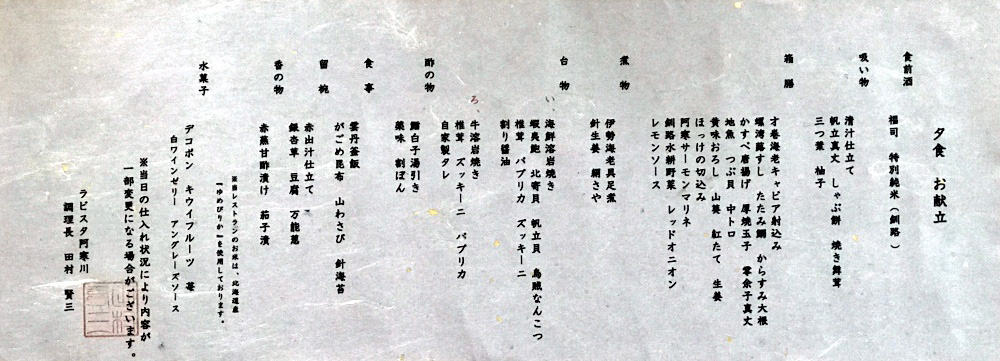 夕食 お献立
食前酒
福司 特別純米（釧路）
吸い物
清汁仕立て
帆立真丈 しゃぶ餅 焼き舞茸
三つ葉 柚子
箱膳
才巻海老キャビア射込み
螺湾蕗すし たたみ鰯 からすみ大根
かすべ唐揚げ 厚焼玉子 零余子真丈
地魚 つぶ貝 中トロ
黄味おろし 山葵 紅たて 生姜
ほっけの切込み
阿寒サーモンマリネ
釧路水耕野菜 レッドオニオン
レモンソース
煮物
伊勢海老具足煮
針生姜 絹さや
台物
い、海鮮溶岩焼き
蝦夷鮑 北寄貝 帆立貝 烏賊なんこつ
椎茸 パプリカ ズッキーニ
割り醤油
ろ、牛溶岩焼き
椎茸 ズッキーニ パプリカ
自家製タレ
酢の物
鱈白子湯引き
薬味 割ぽん
食事
雲丹釜飯
がごめ昆布 山わさび 針海苔
留椀
赤出汁仕立て
銀杏草 豆腐 万能葱
香の物
赤蕪甘酢漬け 茄子漬
※当レストランのお米は、北海道産
『ゆめぴりか』を使用しております。
水菓子
デコポン キウイフルーツ 苺
白ワインゼリー アングレーズソース
※当日の仕入れ状況により内容が
一部変更になる場合がございます。
ラビスタ阿寒川
調理長 田村 賢三